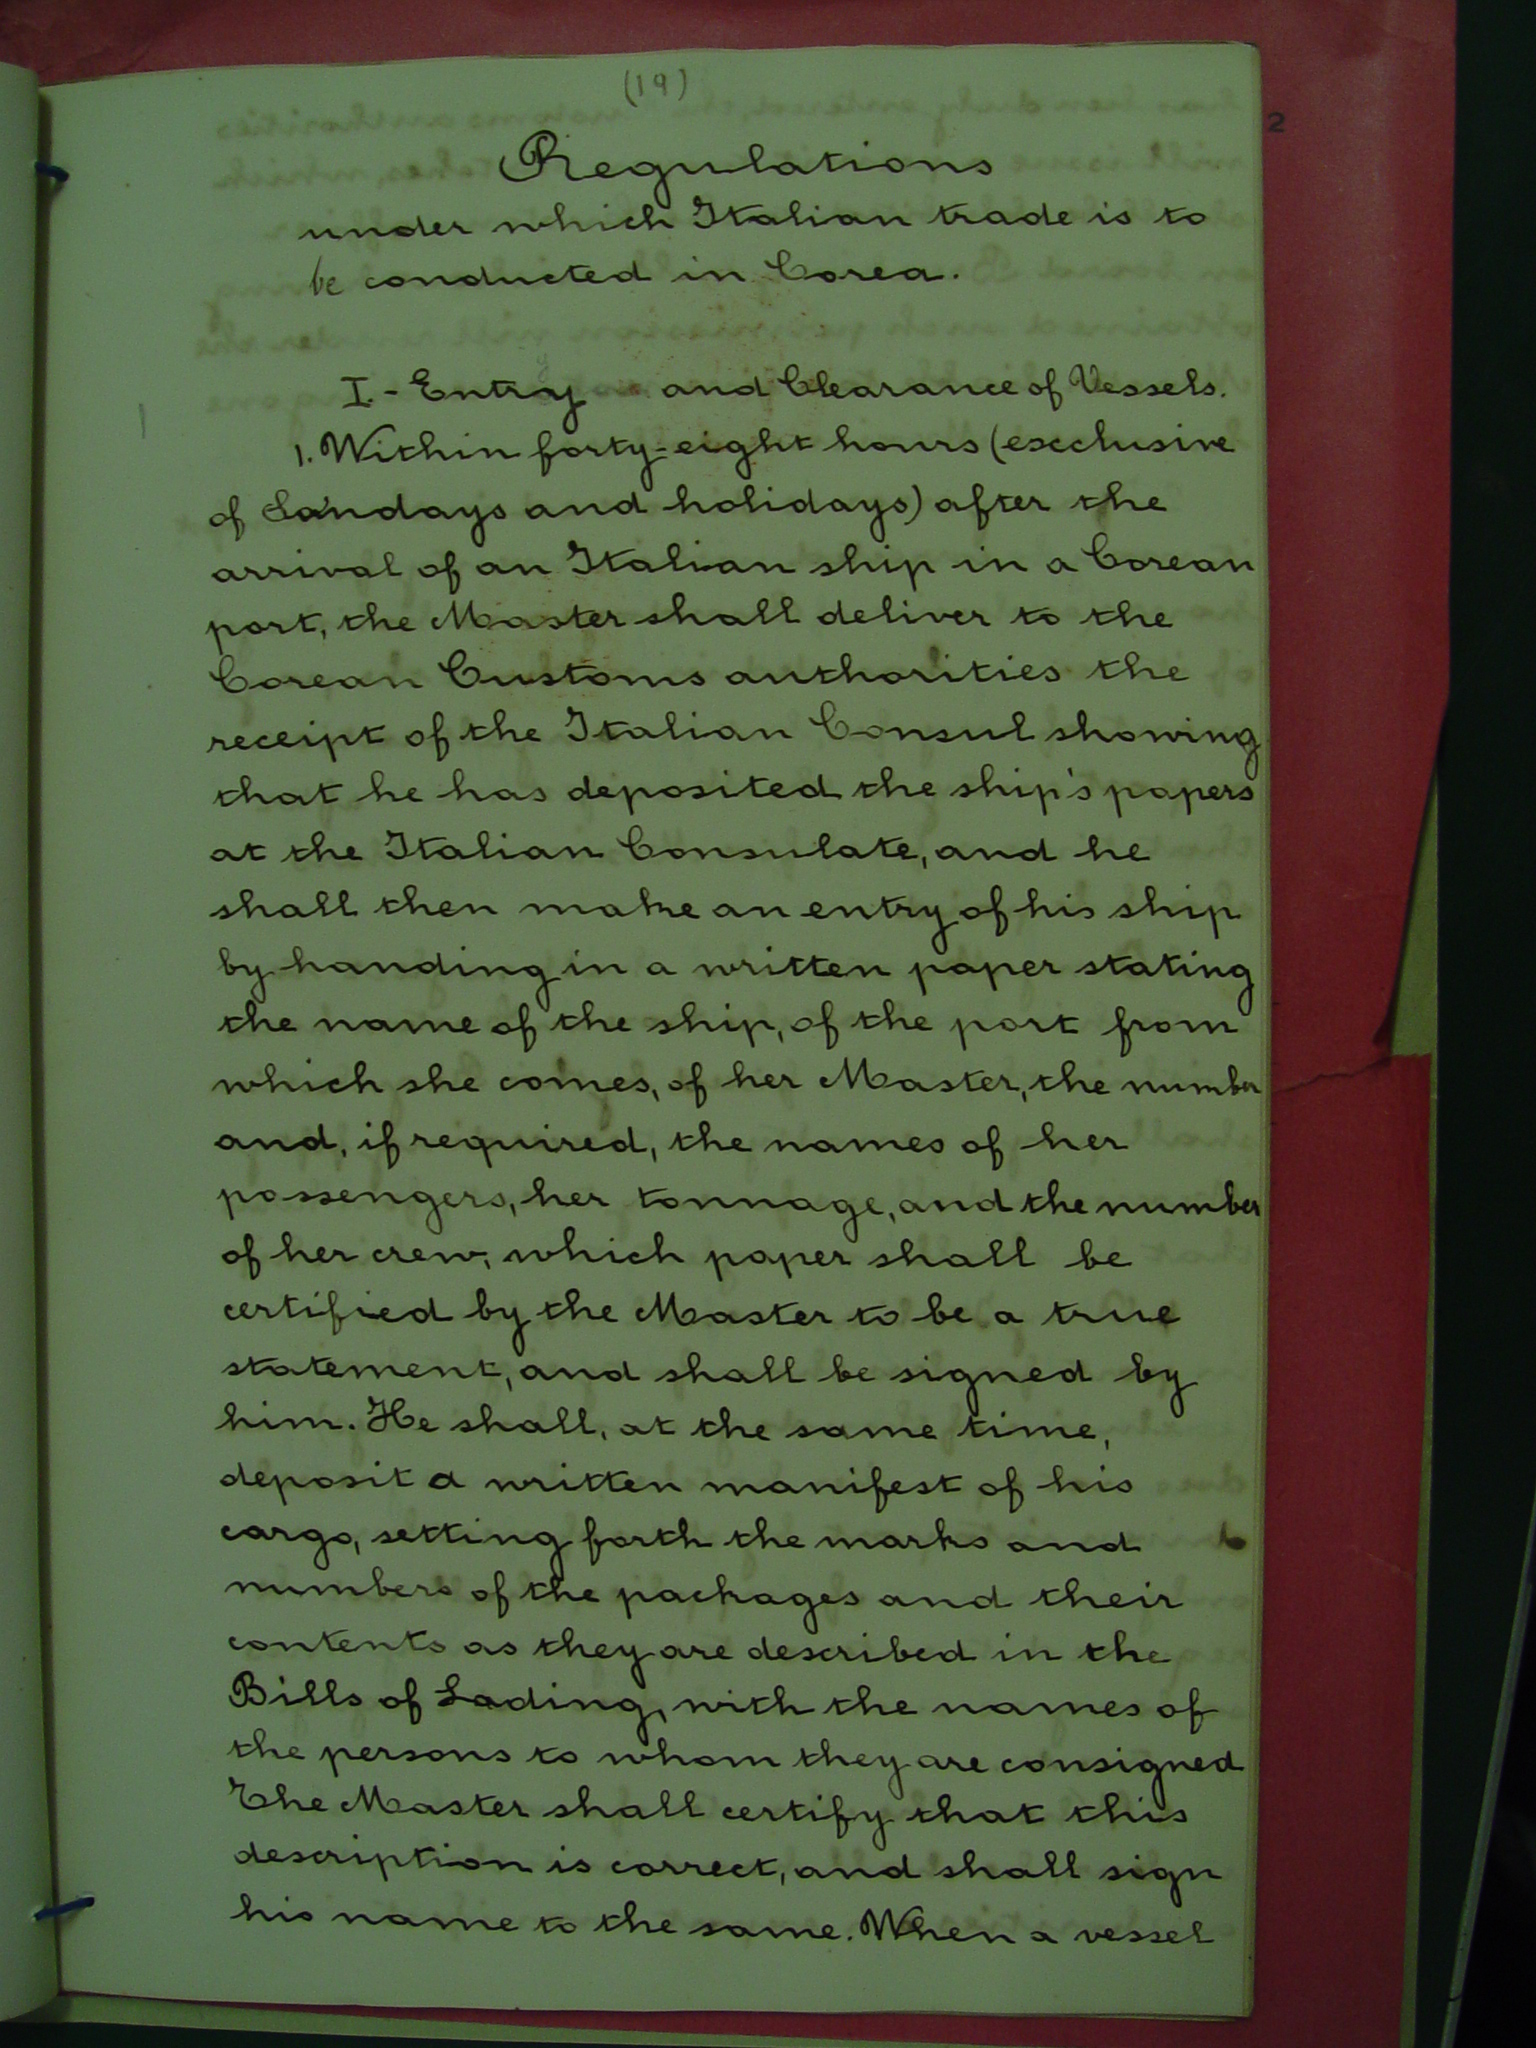 (19)
2
Regulations
under which Italian trade is to
be conducted in Corea.
I. - Entry and Clearance of Vessels.
1. Within forty=eight hours (escclusive
of Sandays and holidays) after the
arrival of an Italian ship in a Corean
port, the Master shall deliver to the
Corean Customs authorities the
receipt of the Italian Consul showing
that he has deposited the ship's papers
at the Italian Consulate, and he
shall then make an entry of his ship
by handing in a written paper stating
the name of the ship, of the port from
which she comes, of her Master, the number
and, if required, the names of her
passengers, her tonnage, and the number
of her crew, which paper shall be
certified by the Master to be a true
statement, and shall be signed by
him. He shall, at the same time,
deposit a written manifest of his
cargo, setting forth the marks and
numbers of the packages and their
contents as they are described in the
Bills of Lading, with the names of
the persons to whom they are consigned
The Master shall certify that this
description is correct, and shall sign
his name to the same. When a vessel